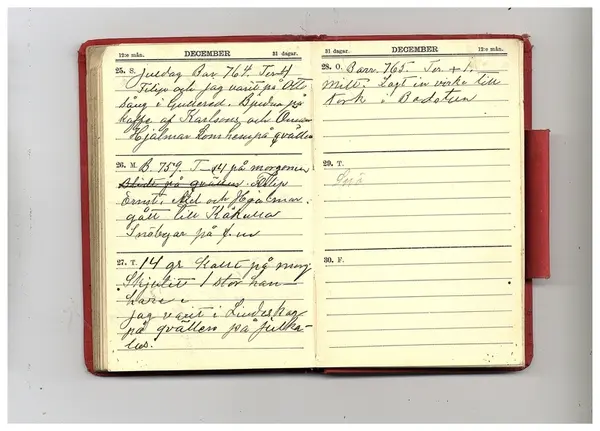 12:e mån. DECEMBER 31 dagar.
25. S. Juldag Bar 764. Ter +1
Filip och jag varit på Ott
sång i Gullered. Bjudna på
kaffe af Karlsons och Oman
Hjälmar kom hem på qvällen
26. M. B. 759. T +4 på morgonen
Blidt på qvällen. Filip
Ernst, Axel och Hjalmar
gått till Kåkulla
Snöbyar på f.m
27. T. 14 gr kallt på morg
Skjutit 1 stor han
hare
jag varit i Lindeskog
på qvällen på julka-
las.
31 dagar. DECEMBER 12:e mån.
28. O. Barr. 765. Ter +1.
Mitt. Lagt in virke till
tork i Badstun
29. T.
Snö
30. F.